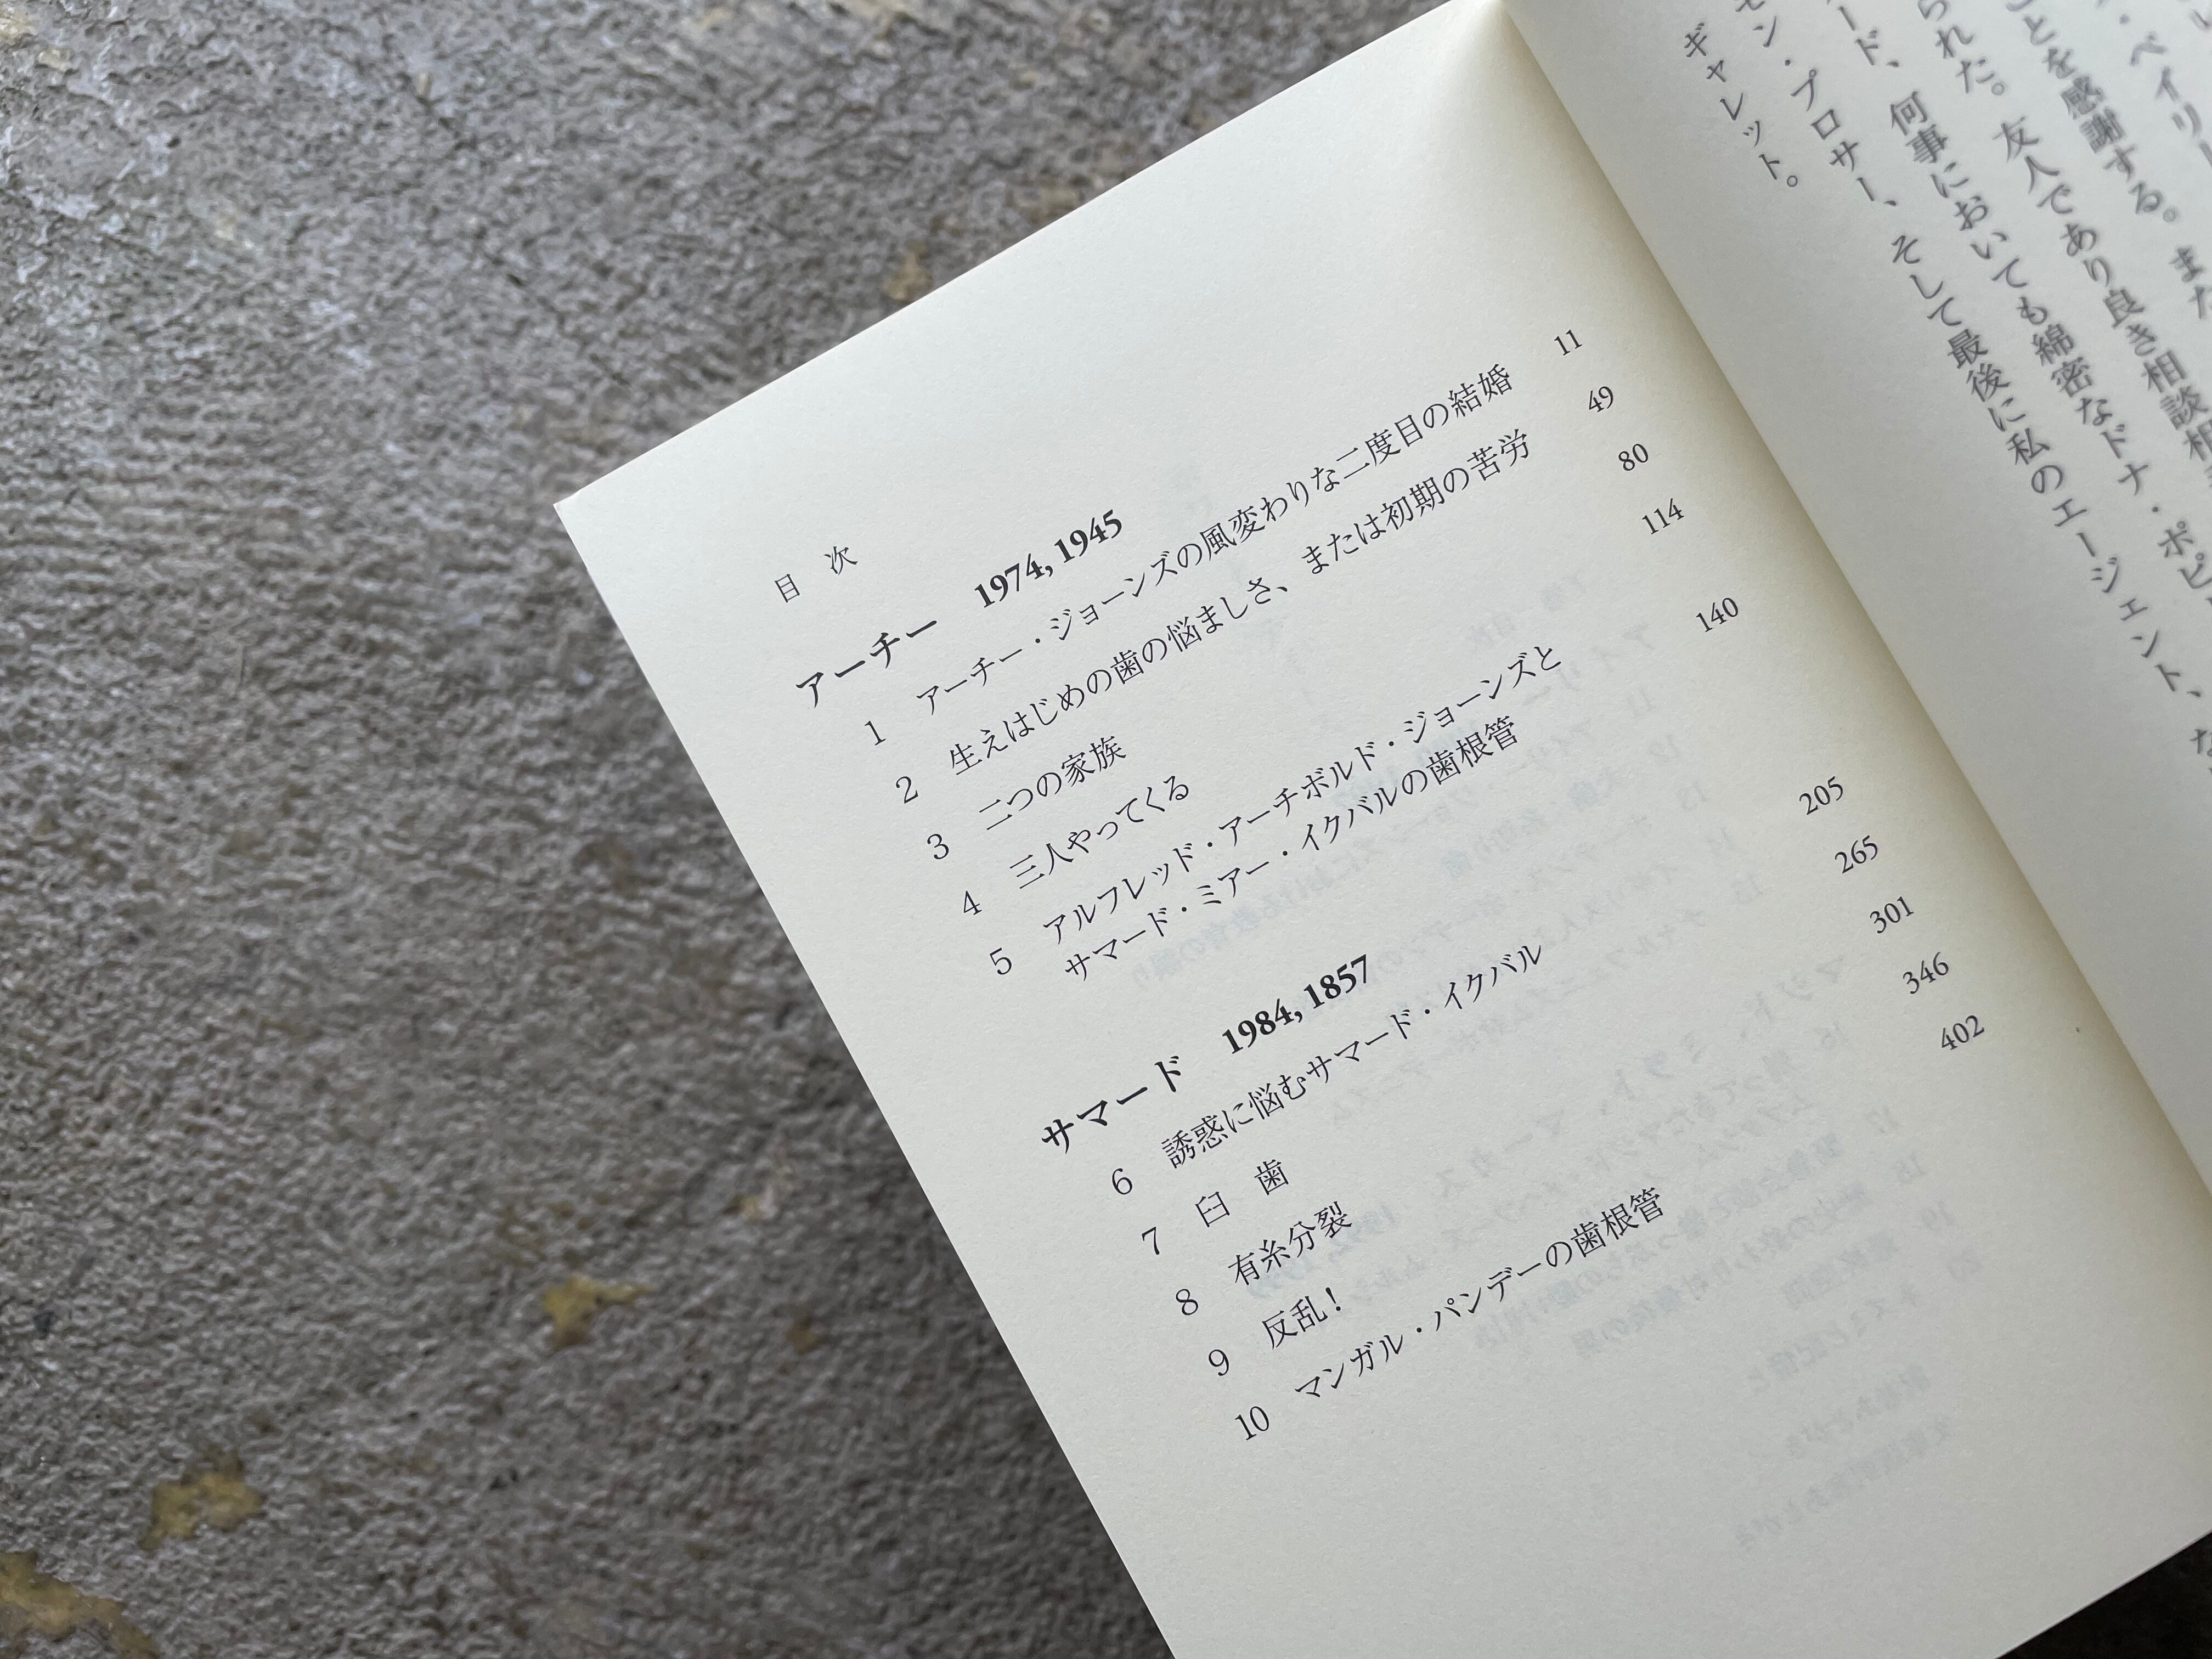 ・ベイリー
ことを感謝する。また
られた。友人であり良き相談相
ード、何事においても綿密なドナ・ポピ
モン・プロサー、そして最後に私のエージェント、
ギャレット。
目 次
アーチー 1974, 1945
1 アーチー・ジョーンズの風変わりな二度目の結婚 11
2 生えはじめの歯の悩ましさ、または初期の苦労 49
3 二つの家族 80
4 三人やってくる 114
5 アルフレッド・アーチボルド・ジョーンズと
サマード・ミアー・イクバルの歯根管 140
サマード 1984, 1857
6 誘惑に悩むサマード・イクバル 205
7 臼 歯 265
8 有糸分裂 301
9 反乱! 346
10 マンガル・パンデーの歯根管 402